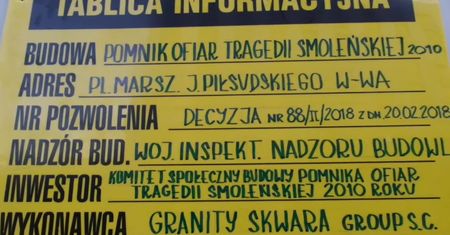 TABLICA INFORMACYJNA
BUDOWA POMNIK OFIAR TRAGEDII SMOLEŃSKIEJ 2010
ADRES PL. MARSZ. J. PIŁSUDSKIEGO W-WA
NR POZWOLENIA DECYZJA NR 88/II/2018 Z DN. 20.02.2018
NADZÓR BUD. WOJ. INSPEKT. NADZORU BUDOWL
INWESTOR KOMITET SPOŁECZNY BUDOWY POMNIKA OFIAR
TRAGEDII SMOLEŃSKIEJ 2010 ROKU
WYKONAWCA GRANITY SKWARA GROUP S.C.